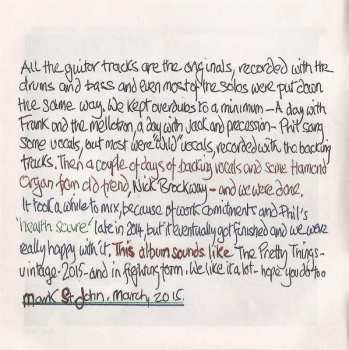 All the guitar tracks are the originals, recorded with the
drums and bass and even most of the solos were put down
the same way. We kept overdubs to a minimum - A day with
Frank and the mellotron, a day with Jack and precession - Phil sang
some vocals, but most were "wild" vocals, recorded with the backing
tracks. Then a couple of days of backing vocals and some Hamond
Organ from old friend, Nick Brockway - and we were done.
It took a while to mix, because of work comitments and Phil's
"health scare" late in 2014, but it eventually got finished and we were
really happy with it. This album sounds like The Pretty Things -
vintage - 2015 - and in fighting form. We like it a lot - hope you do too
Mark St John. March, 2015.